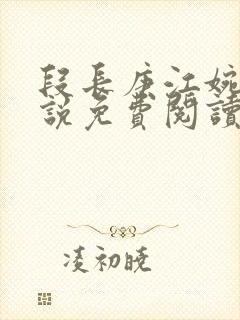 段長庚江婉
說免費閱讀
凌初曉